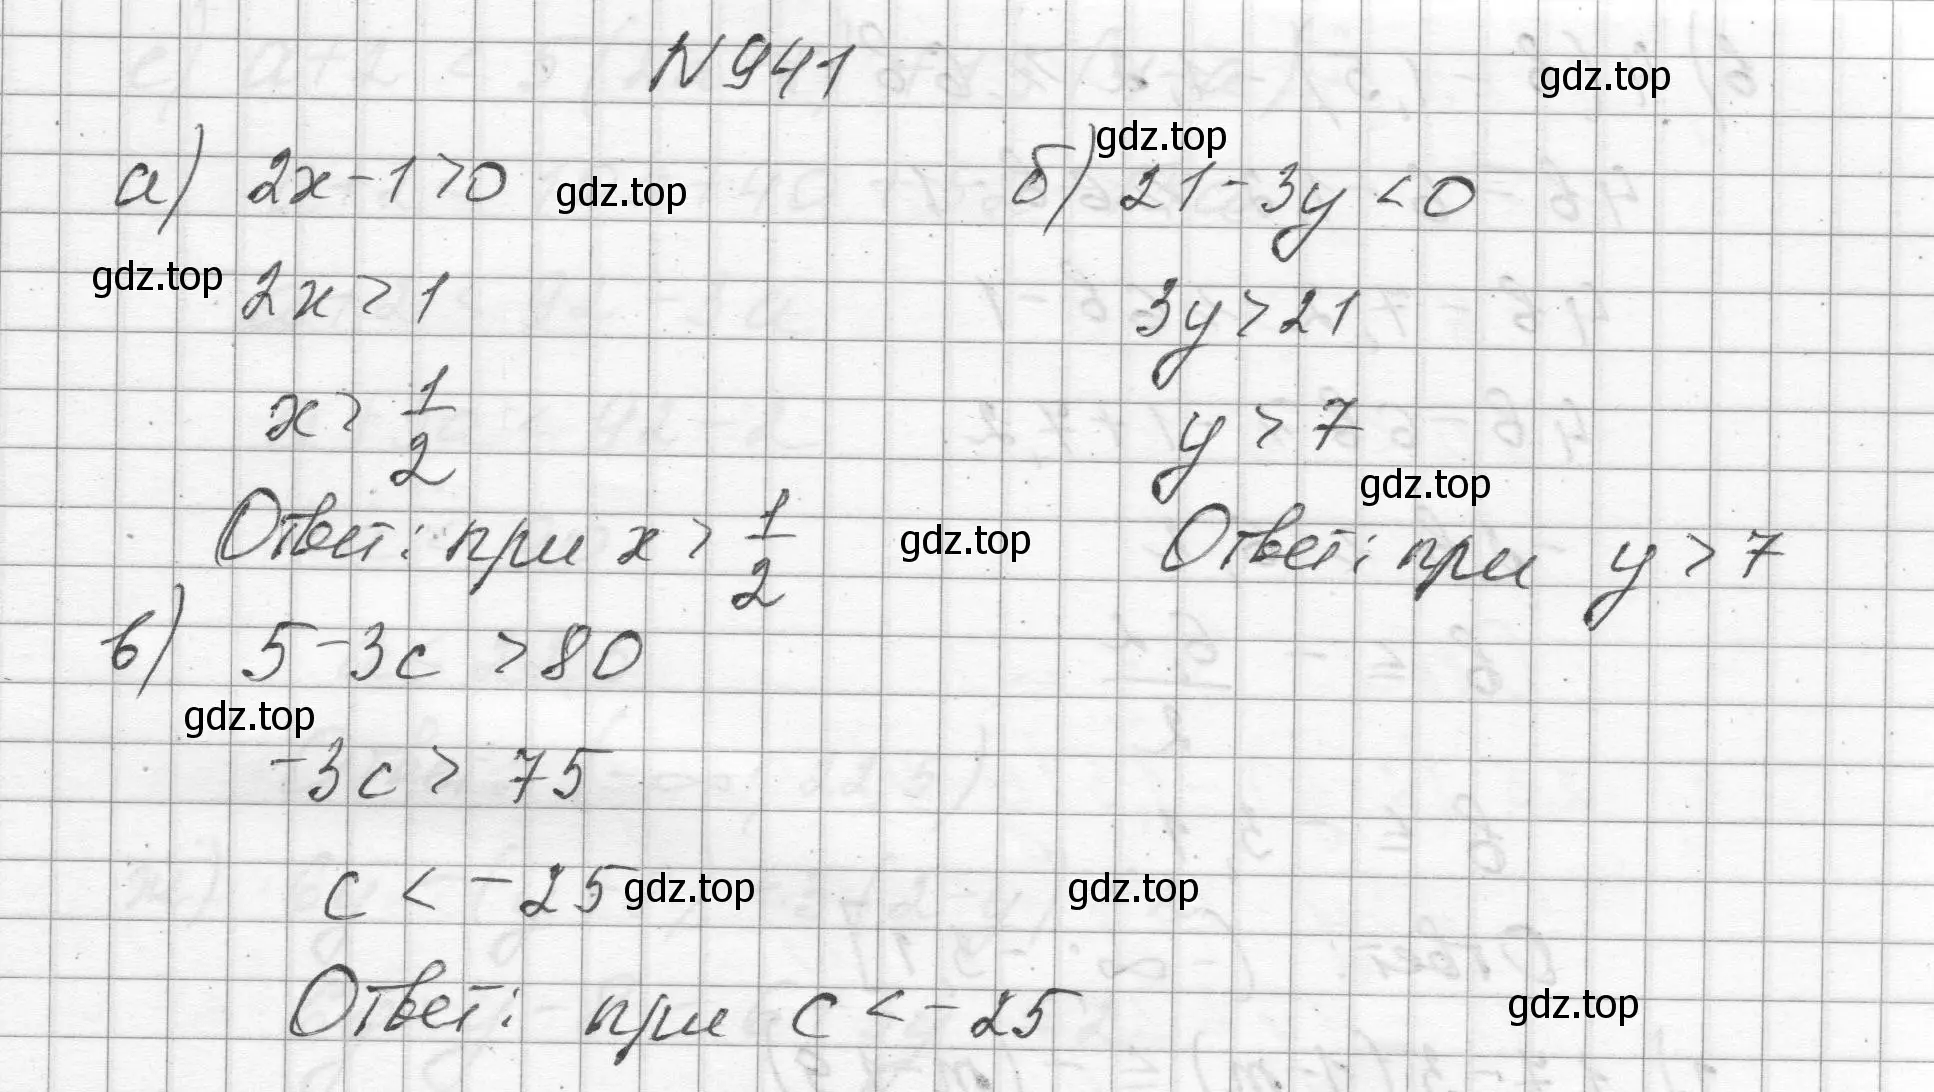 N 941
а) 2x - 1 > 0
2x > 1
x > 1/2
Ответ: при x > 1/2
б) 21 - 3y < 0
3y > 21
y > 7
Ответ: при y > 7
в) 5 - 3c > 80
-3c > 75
c < -25
Ответ: при c < -25
gdz.top
gdz.top
gdz.top
gdz.top
gdz.top
gdz.top
gdz.top
gdz.top
gdz.top
gdz.top